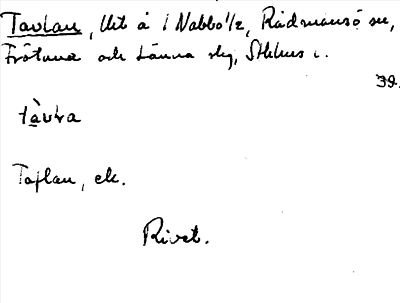 Tavlan, Utl å 1 Nabbo 1/2, Rådmansö sn,
Frötuna och Länna slg, Sthlms l.
39.
tàvla
Taflan, ek.
Rivet.